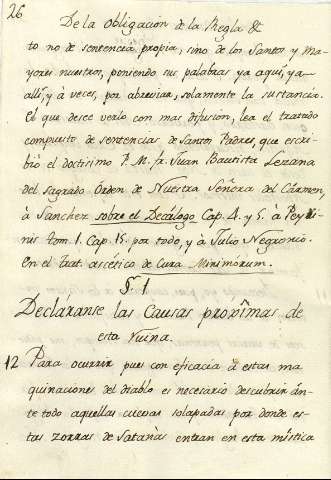 26
De la obligacion de la Regla &
to no de sentencia propia, sino de los Santos y Ma-
yores nuestros, poniendo sus palabras ya aqui, ya
alli, y à veces, por abreviar, solamente la sustancia.
El que desee verlo con mas difusion, lea el tratado
compuesto de sentencias de Santos Padres, que escri-
bió el doctisimo P. M. fr. Juan Bautista Lezana
del Sagrado Orden de Nuestra Señora del Carmen,
à Sanchez sobre el Decálogo Cap. 4. y 5. à Peyri-
nis tom. 1. Cap. 15. por todo, y à Julio Negronio.
en el trat. ascético de Cura Minimorum.
§ 1
Declaranse las Causas proxîmas de
esta Ruina.
12 Para ocurrir pues con eficacia à estas ma
quinaciones del diablo es necesario descubrir án-
te todo aquellas cuevas solapadas por donde es-
tas zorras de Satanàs entran en esta mística